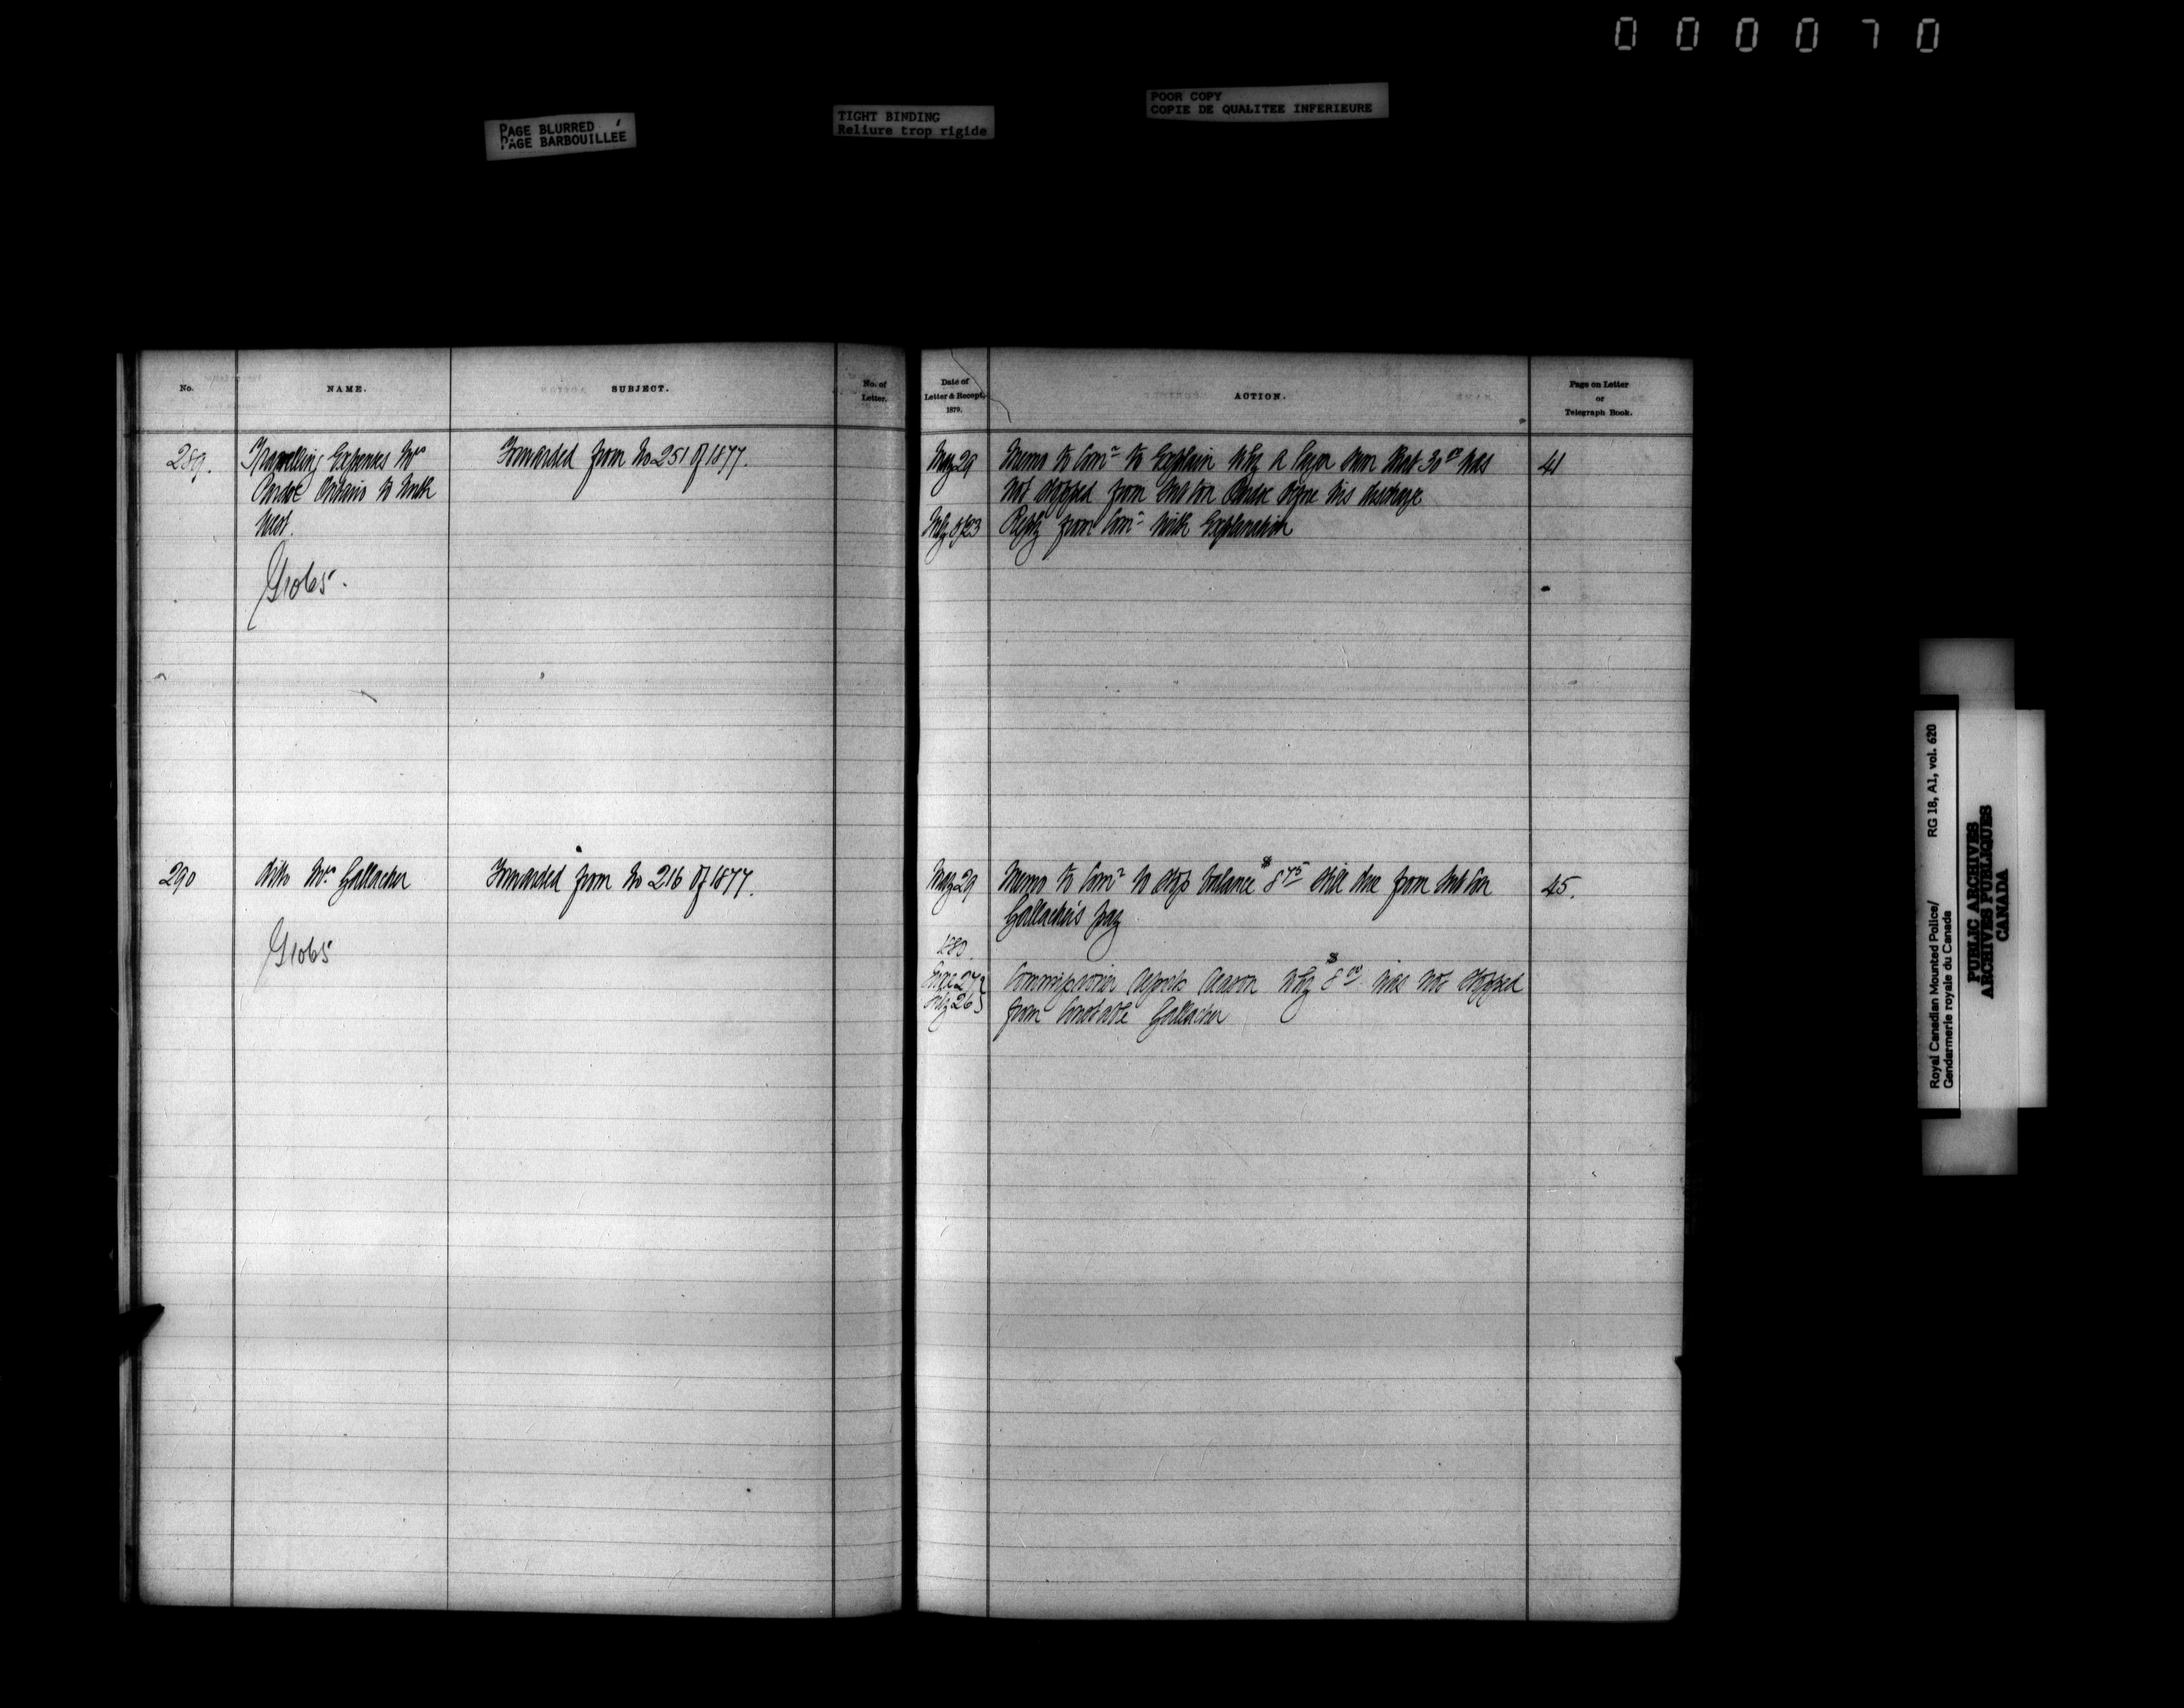 000070
PAGE BLURRED
PAGE BARBOUILLÉE
TIGHT BINDING
Reliure trop rigide
POOR COPY
COPIE DE QUALITEE INFERIEURE
No.
NAME.
SUBJECT.
No. of
Letter.
Date of
Letter & Recept.
1879.
ACTION.
Page on Letter
or
Telegraph Book.
289.
Travelling Expenses Mrs
Ontario to North
West.
G1065.
Forwarded from No 251 of 1877.
May 29
Memo to Comr to Explain why a larger sum than 30 00 was
not stopped from Sub Con before his discharge
Reply from Comr with Explanation
41
290
ditto Mrs Gallacher
G1065
Forwarded from No 216 of 1877.
May 29
Memo to Comr to stop balance $8 75 still due from Sub Con
Gallacher's pay
45.
1880.
June 27
July 26
Commissioner reports reason why $8 00 was not stopped
from Constable Gallacher
Royal Canadian Mounted Police/ RG 18, A1, vol. 620
Gendarmerie royale du Canada
PUBLIC ARCHIVES
ARCHIVES PUBLIQUES
CANADA